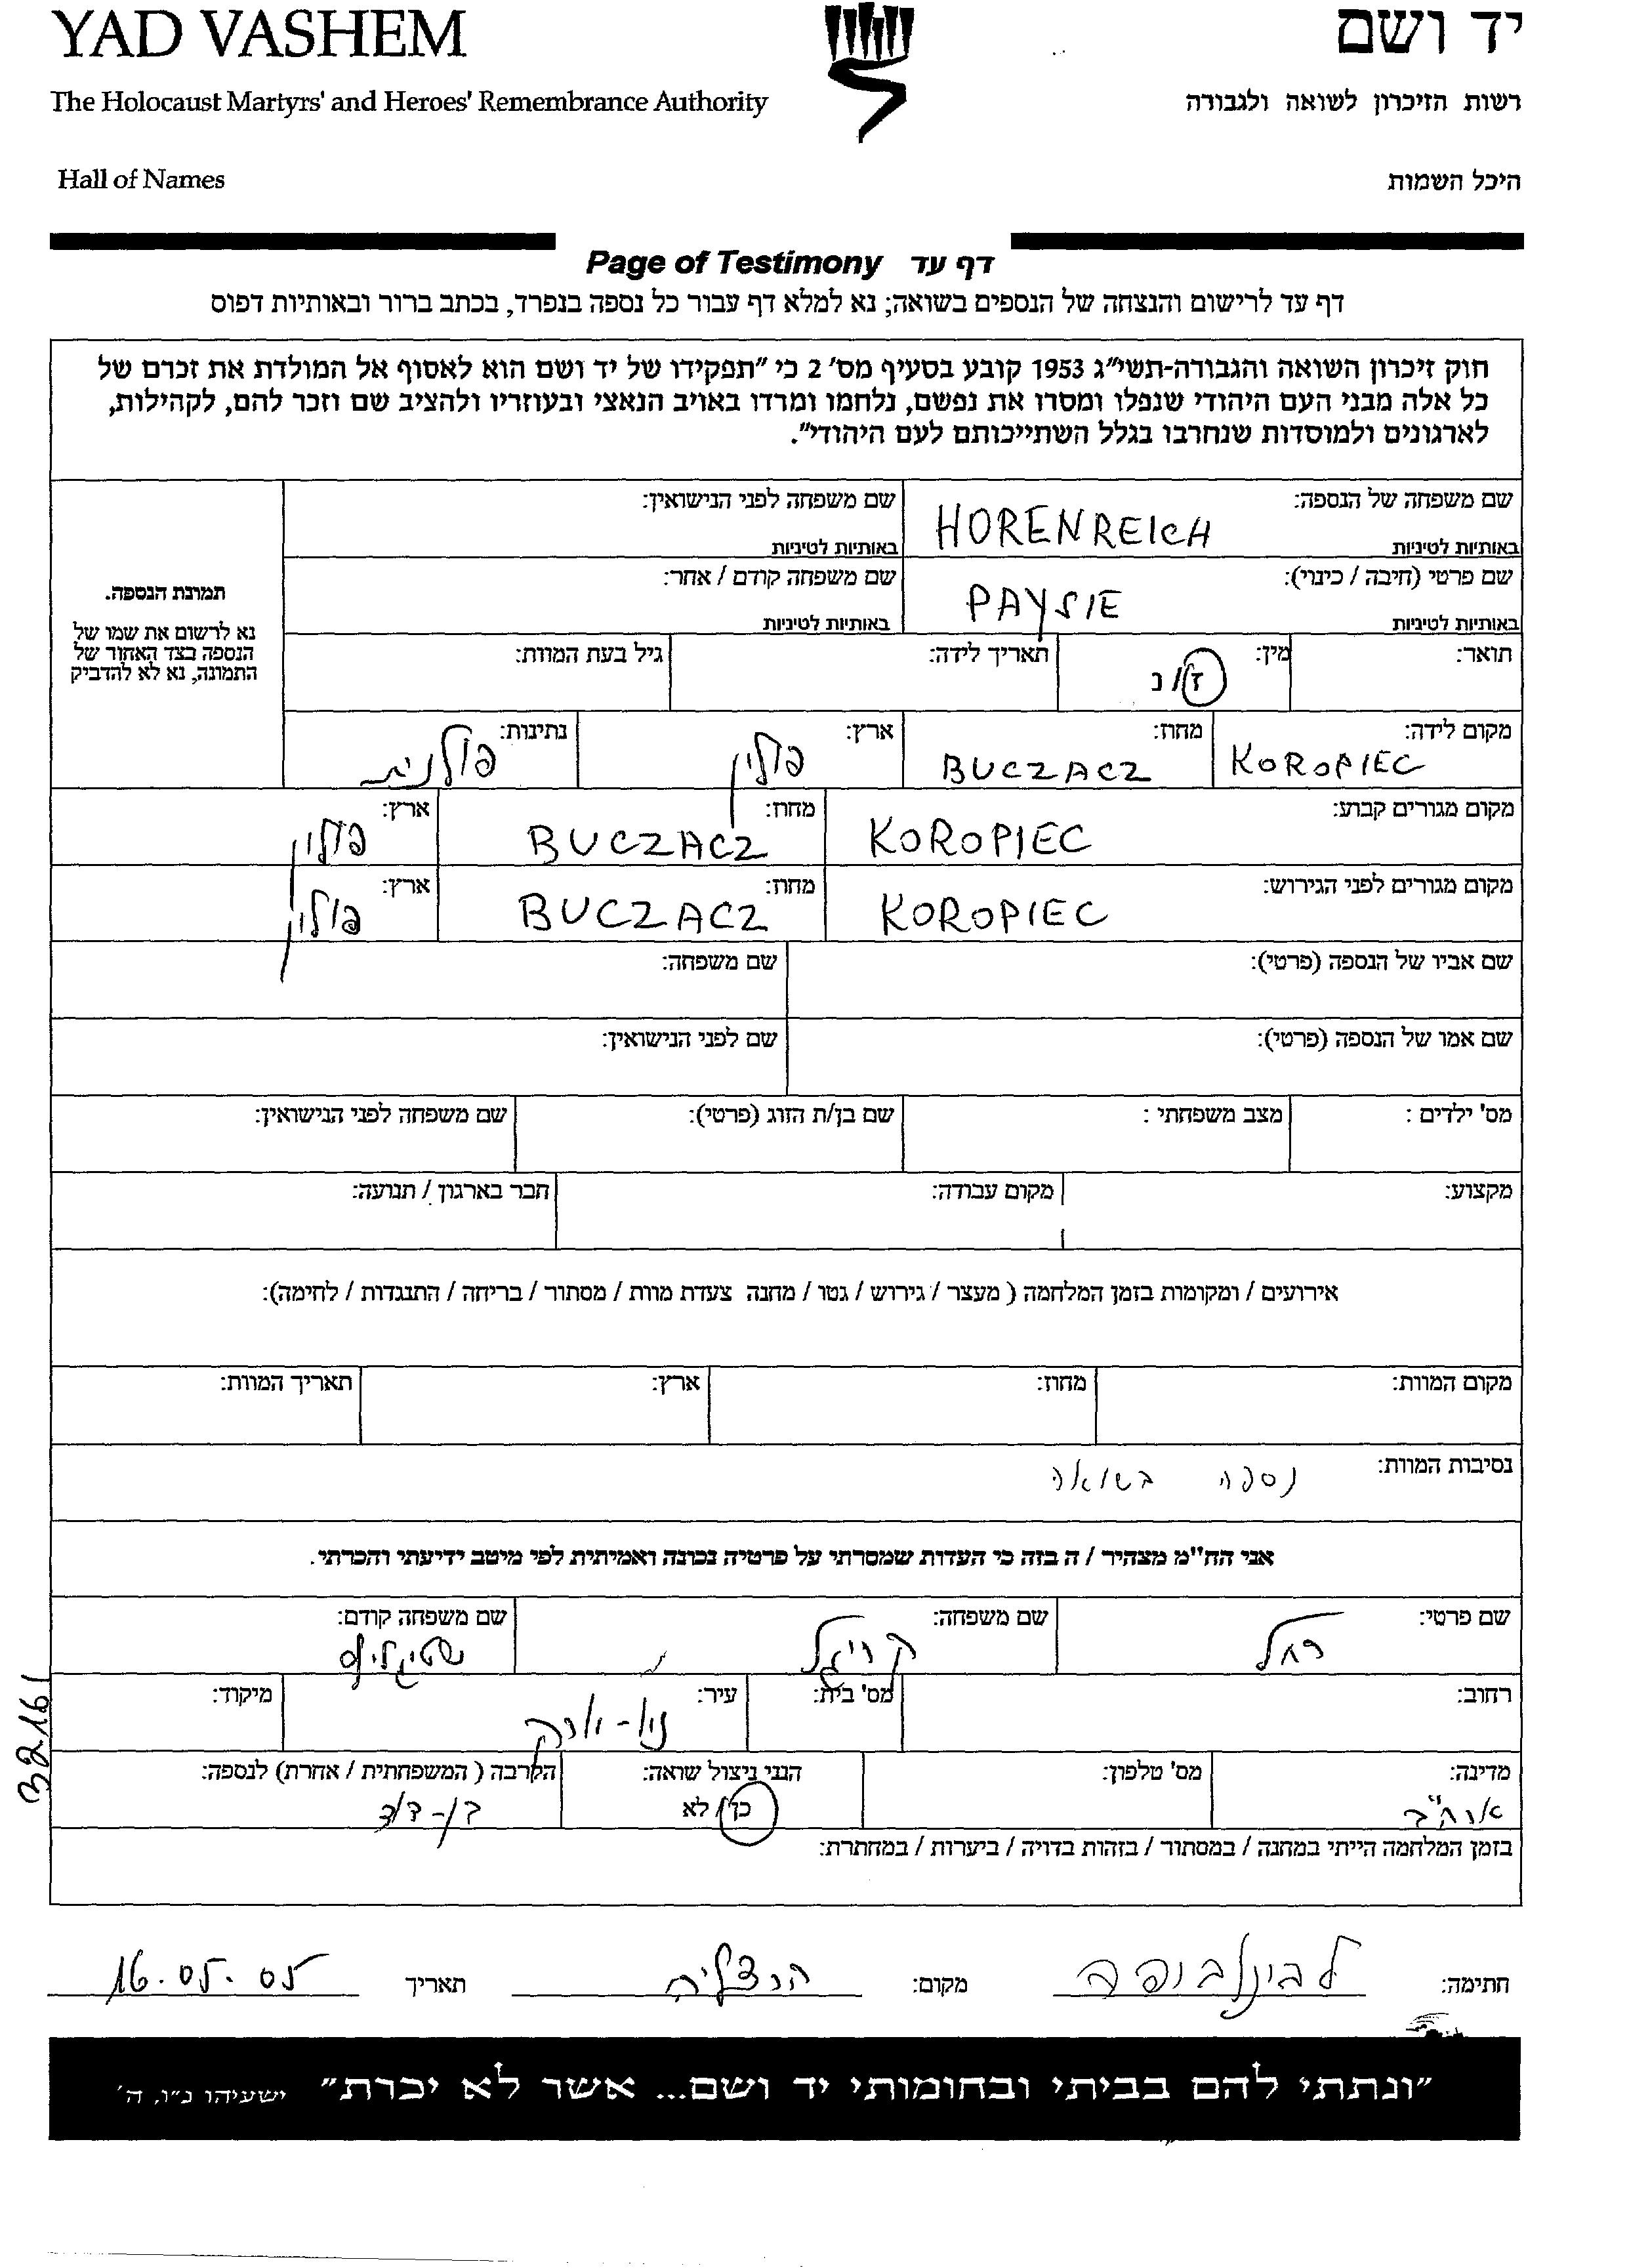 YAD VASHEM
יד ושם
The Holocaust Martyrs' and Heroes' Remembrance Authority
רשות הזיכרון לשואה ולגבורה
Hall of Names
היכל השמות
Page of Testimony דף עד
דף עד לרישום והנצחה של הנספים בשואה; נא למלא דף עבור כל נספה בנפרד, בכתב ברור ובאותיות דפוס
חוק זיכרון השואה והגבורה-תשי"ג 1953 קובע בסעיף מס' 2 כי "תפקידו של יד ושם הוא לאסוף אל המולדת את זכרם של
כל אלה מבני העם היהודי שנפלו ומסרו את נפשם, נלחמו ומרדו באויב הנאצי ובעוזריו ולהציב שם וזכר להם, לקהילות,
לארגונים ולמוסדות שנחרבו בגלל השתייכותם לעם היהודי".
שם משפחה של הנספה: HORENREICH שם משפחה לפני הנישואין:
באותיות לטיניות באותיות לטיניות
שם פרטי (חיבה / כינוי): PAYSIE שם משפחה קודם / אחר:
באותיות לטיניות באותיות לטיניות
תמונת הנספה.
נא לרשום את שמו של
הנספה בצד האחור של
התמונה, נא לא להדביק
תואר: מין: ז / נ תאריך לידה: גיל בעת המוות:
מקום לידה: KOROPIEC מחוז: BUCZACZ ארץ: פולין נתינות: פולנית
מקום מגורים קבוע: KOROPIEC מחוז: BUCZACZ ארץ: פולין
מקום מגורים לפני הגירוש: KOROPIEC מחוז: BUCZACZ ארץ: פולין
שם אביו של הנספה (פרטי): שם משפחה:
שם אמו של הנספה (פרטי): שם לפני הנישואין:
מס' ילדים : מצב משפחתי : שם בן/ת הזוג (פרטי): שם משפחה לפני הנישואין:
מקצוע: מקום עבודה: חבר בארגון / תנועה:
אירועים / ומקומות בזמן המלחמה ( מעצר / גירוש / גטו / מחנה צעדת מוות / מסתור / בריחה / התנגדות / לחימה):
מקום המוות: מחוז: ארץ: תאריך המוות:
נסיבות המוות: נספה בשואה
אני הח"מ מצהיר / ה בזה כי העדות שמסרתי על פרטיה נכונה ואמיתית לפי מיטב ידיעתי והכרתי.
שם פרטי: רחל שם משפחה: קריגל שם משפחה קודם:
רחוב: מס' בית: עיר: ניו-יורק מיקוד:
מדינה: ארה"ב מס' טלפון: הנני ניצול שואה: כן / לא הקרבה ( המשפחתית / אחרת) לנספה: בן-דוד
בזמן המלחמה הייתי במחנה / במסתור / בזהות בדויה / ביערות / במחתרת:
32161
חתימה: מקום: הרצליה תאריך 16.05.05
"ונתתי להם בביתי ובחומותי יד ושם... אשר לא יכרת" ישעיהו נ"ו, ה'